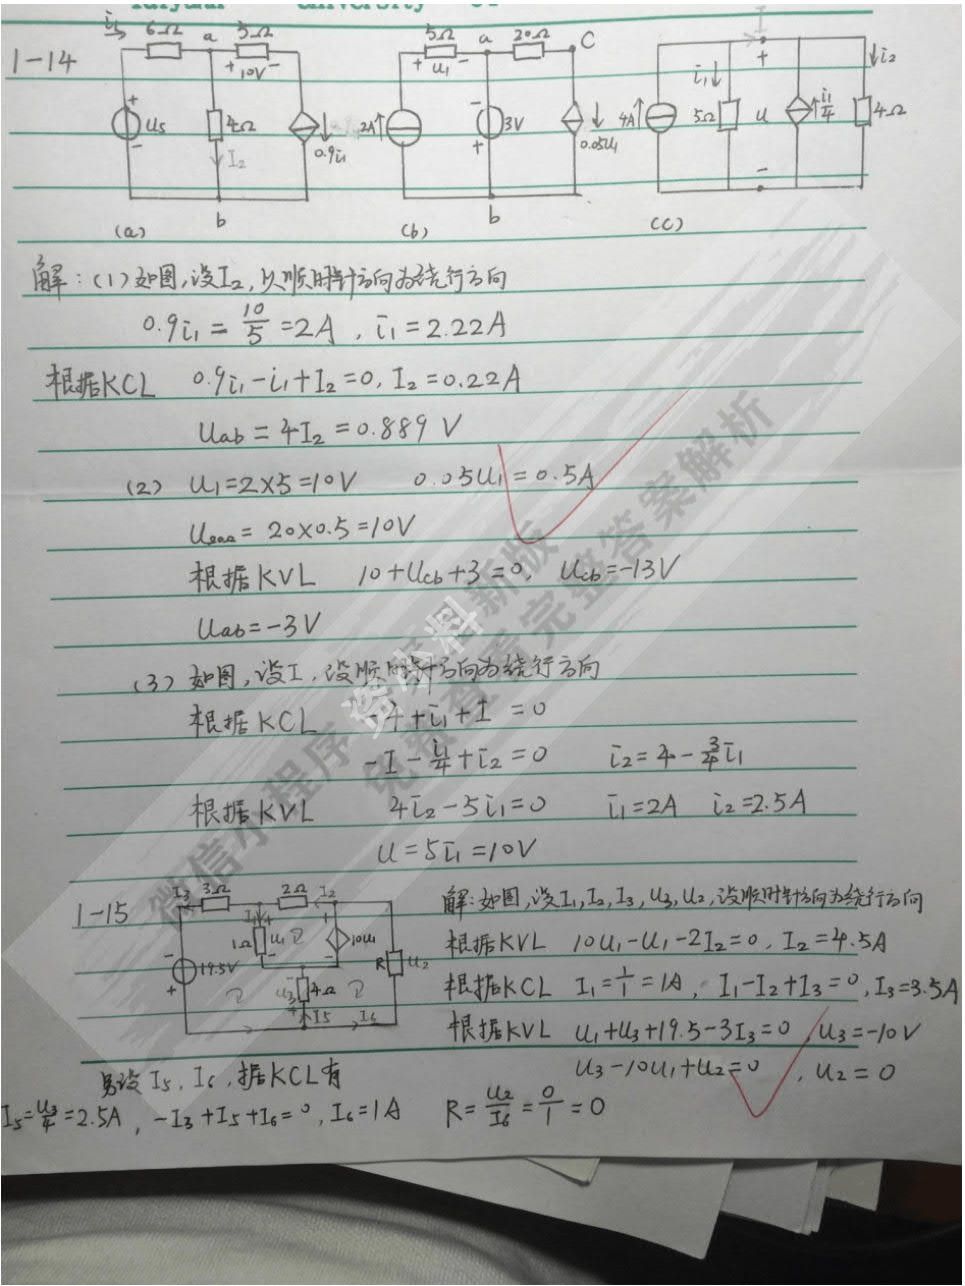 University
1-14
i₁ 6Ω a 5Ω
+ 10V -
+ Us -
4Ω
I₂
0.9i₁
b
(a)
5Ω a 20Ω C
+ u₁ -
2A
- 3V +
0.05u₁
b
(b)
I
4A i₁ 5Ω + u - i₁/4 i₂ 4Ω
(c)
解:(1)如图,设I₂,以顺时针方向为绕行方向
0.9i₁ = 10/5 = 2A , i₁ = 2.22A
根据KCL 0.9i₁-i₁+I₂=0, I₂=0.22A
Uab = 4I₂ = 0.889 V
(2) U₁=2×5=10V 0.05U₁=0.5A
= 20×0.5=10V
根据KVL 10+Ucb+3=0, Ucb=-13V
Uab=-3V
(3) 如图,设I,设顺时针方向为绕行方向
根据KCL -4+i₁+I =0
-I-i₁/4+i₂=0 i₂=4-3/4 i₁
根据KVL 4i₂-5i₁=0 i₁=2A i₂=2.5A
U=5i₁=10V
1-15
I₃ 3Ω 2Ω I₂
I₁ +
1Ω u₁ + 10u₁ -
- 19.5V +
u₃ 4Ω
R u₂
I5 I6
解:如图,设I₁,I₂,I₃,U₃,U₂,设顺时针方向为绕行方向
根据KVL 10U₁-U₁-2I₂=0, I₂=4.5A
根据KCL I₁=1/1=1A, I₁-I₂+I₃=0, I₃=3.5A
根据KVL U₁+U₃+19.5-3I₃=0, U₃=-10V
U₃-10U₁+U₂=0 , U₂=0
另设I5、I6,据KCL有
I5=U₃/4=2.5A, -I₃+I5+I6=0, I6=1A R=U₂/I6=0/1=0
微信小程序 资小料 新版
免费查看完整答案解析